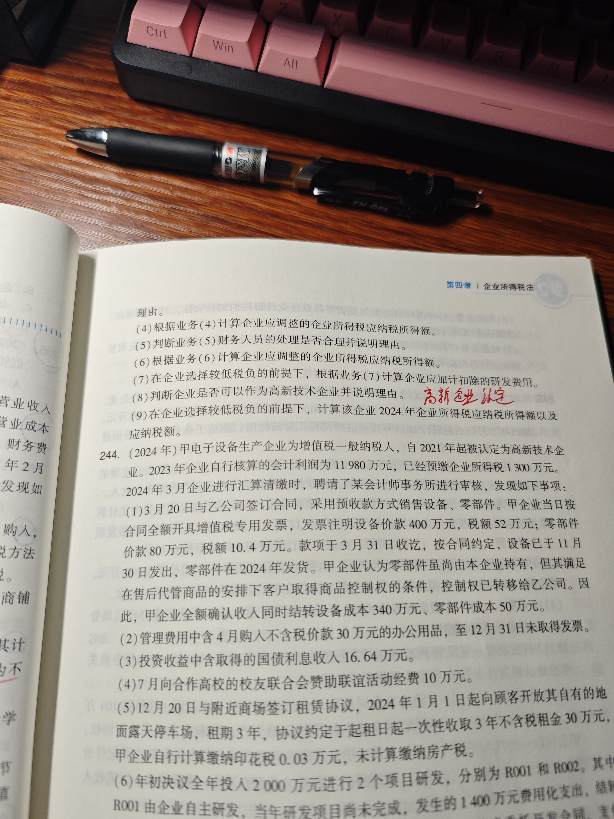 Ctrl
Win
Alt
第四章 | 企业所得税法
理由。
(4)根据业务(4)计算企业应调整的企业所得税应纳税所得额。
(5)判断业务(5)财务人员的处理是否合理并说明理由。
(6)根据业务(6)计算企业应调整的企业所得税应纳税所得额。
(7)在企业选择较低税负的前提下，根据业务(7)计算企业应加计扣除的研发费用。
(8)判断企业是否可以作为高新技术企业并说明理由。 高新企业认定
(9)在企业选择较低税负的前提下，计算该企业2024年企业所得税应纳税所得额以及
应纳税额。
244. (2024年)甲电子设备生产企业为增值税一般纳税人，自2021年起被认定为高新技术企
业。2023年企业自行核算的会计利润为11 980万元，已经预缴企业所得税1 300万元。
2024年3月企业进行汇算清缴时，聘请了某会计师事务所进行审核，发现如下事项：
(1)3月20日与乙公司签订合同，采用预收款方式销售设备、零部件。甲企业当日按
合同全额开具增值税专用发票，发票注明设备价款400万元，税额52万元；零部件
价款80万元，税额10.4万元。款项于3月31日收讫，按合同约定，设备已于11月
30日发出，零部件在2024年发货。甲企业认为零部件虽尚由本企业持有，但其满足
在售后代管商品的安排下客户取得商品控制权的条件，控制权已转移给乙公司。因
此，甲企业全额确认收入同时结转设备成本340万元、零部件成本50万元。
(2)管理费用中含4月购入不含税价款30万元的办公用品，至12月31日未取得发票。
(3)投资收益中含取得的国债利息收入16.64万元。
(4)7月向合作高校的校友联合会赞助联谊活动经费10万元。
(5)12月20日与附近商场签订租赁协议，2024年1月1日起向顾客开放其自有的地
面露天停车场，租期3年，协议约定于起租日起一次性收取3年不含税租金30万元，
甲企业自行计算缴纳印花税0.03万元，未计算缴纳房产税。
(6)年初决议全年投入2 000万元进行2个项目研发，分别为R001和R002。其中
R001由企业自主研发，当年研发项目尚未完成，发生的1 400万元费用化支出，结转